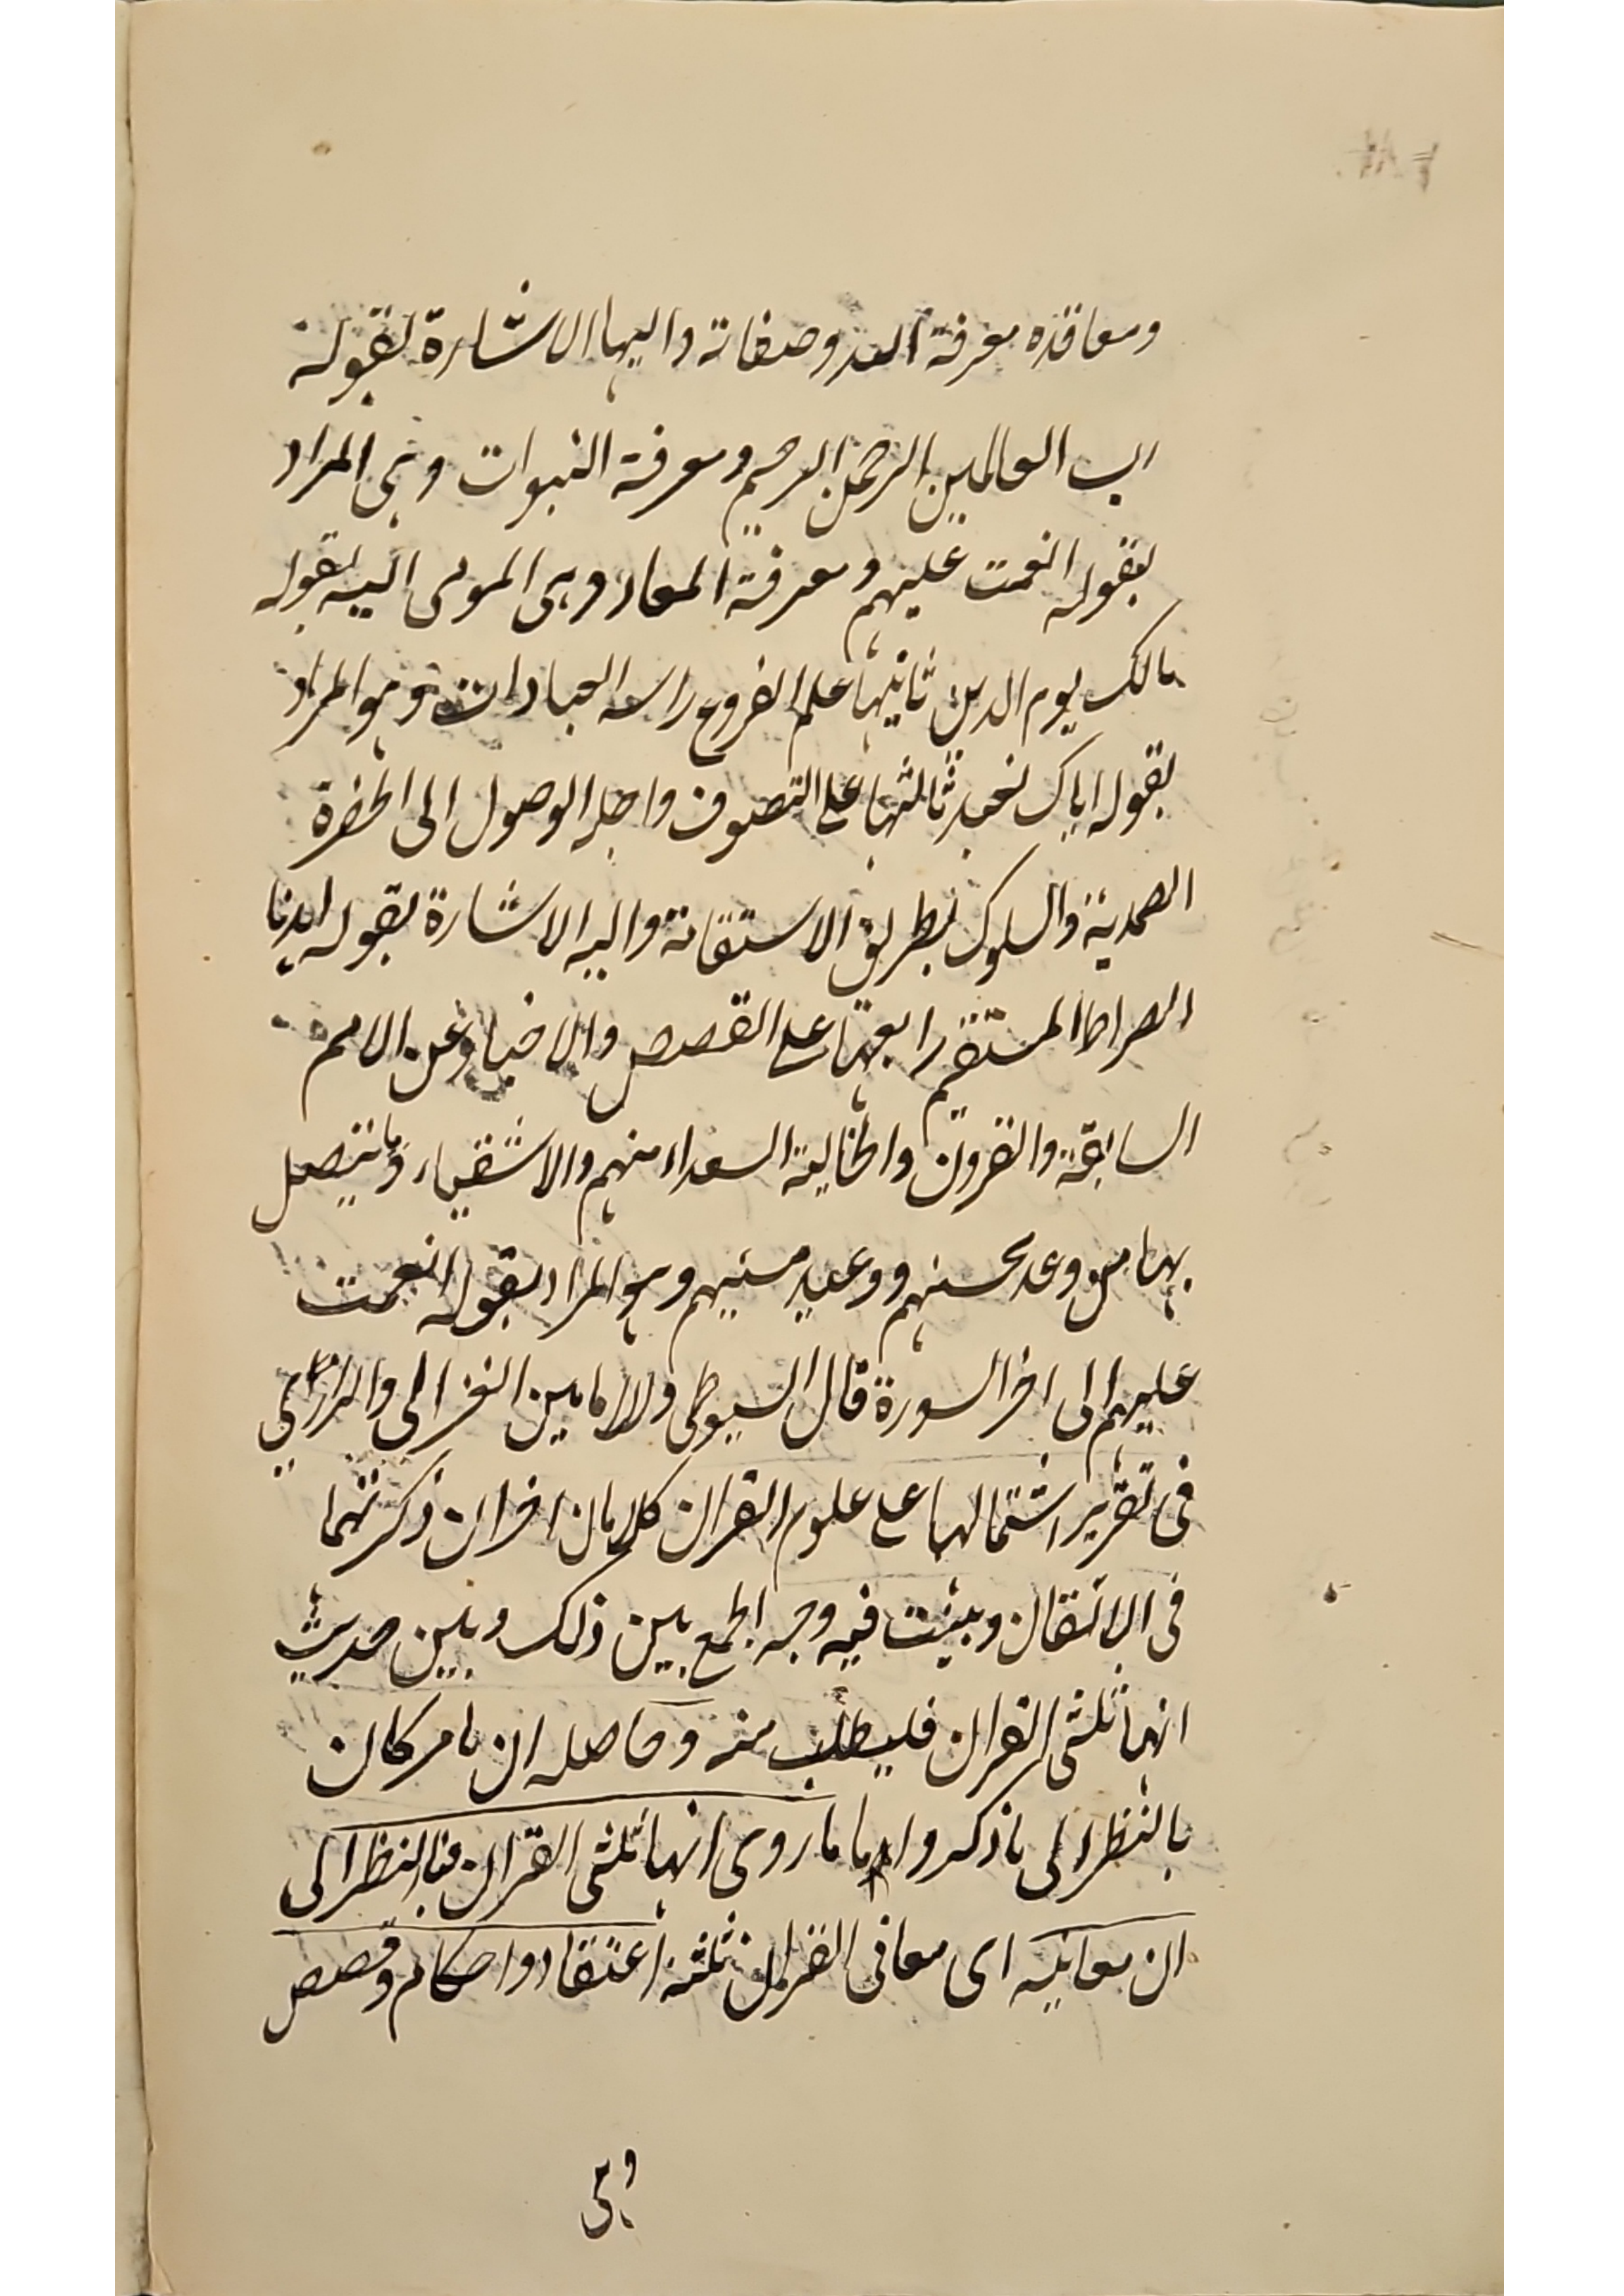 ومعاقده معرفة الله وصفاته واليها الاشارة بقوله
رب العالمين الرحمن الرحيم ومعرفة النبوات وهى المراد
بقوله انعمت عليهم ومعرفة المعاد وهى المومى اليه بقوله
مالك يوم الدين ثانيها علم الفروع راسه العبادات وهو المراد
بقوله اياك نعبد ثالثها علم التصوف واجله الوصول الى الحضرة
الصمدية والسلوك بطريق الاستقامة واليه الاشارة بقوله اهدنا
الصراط المستقيم رابعها علم القصص والاخبار عن الامم
السابقة والقرون والخالية السعداء منهم والاشقياء وما يتصل
بها من وعد محسنهم ووعيد مسيهم وهو المراد بقوله انعمت
عليهم الى اخر السورة قال السيوطى وللامامين الغزالى والرازى
فى تقرير اشتمالها على علوم القران كلامان اخران ذكرتهما
فى الاتقان وبينت فيه وجه الجمع بين ذلك وبين حديث
انها ثلثى القران فليطلب منه وحاصله ان ما مر كان
بالنظر الى ما ذكروا ما ما روى انها ثلثى القران فبالنظر الى
ان معانيه اى معانى القران ثلثة اعتقاد واحكام وقصص
وهى